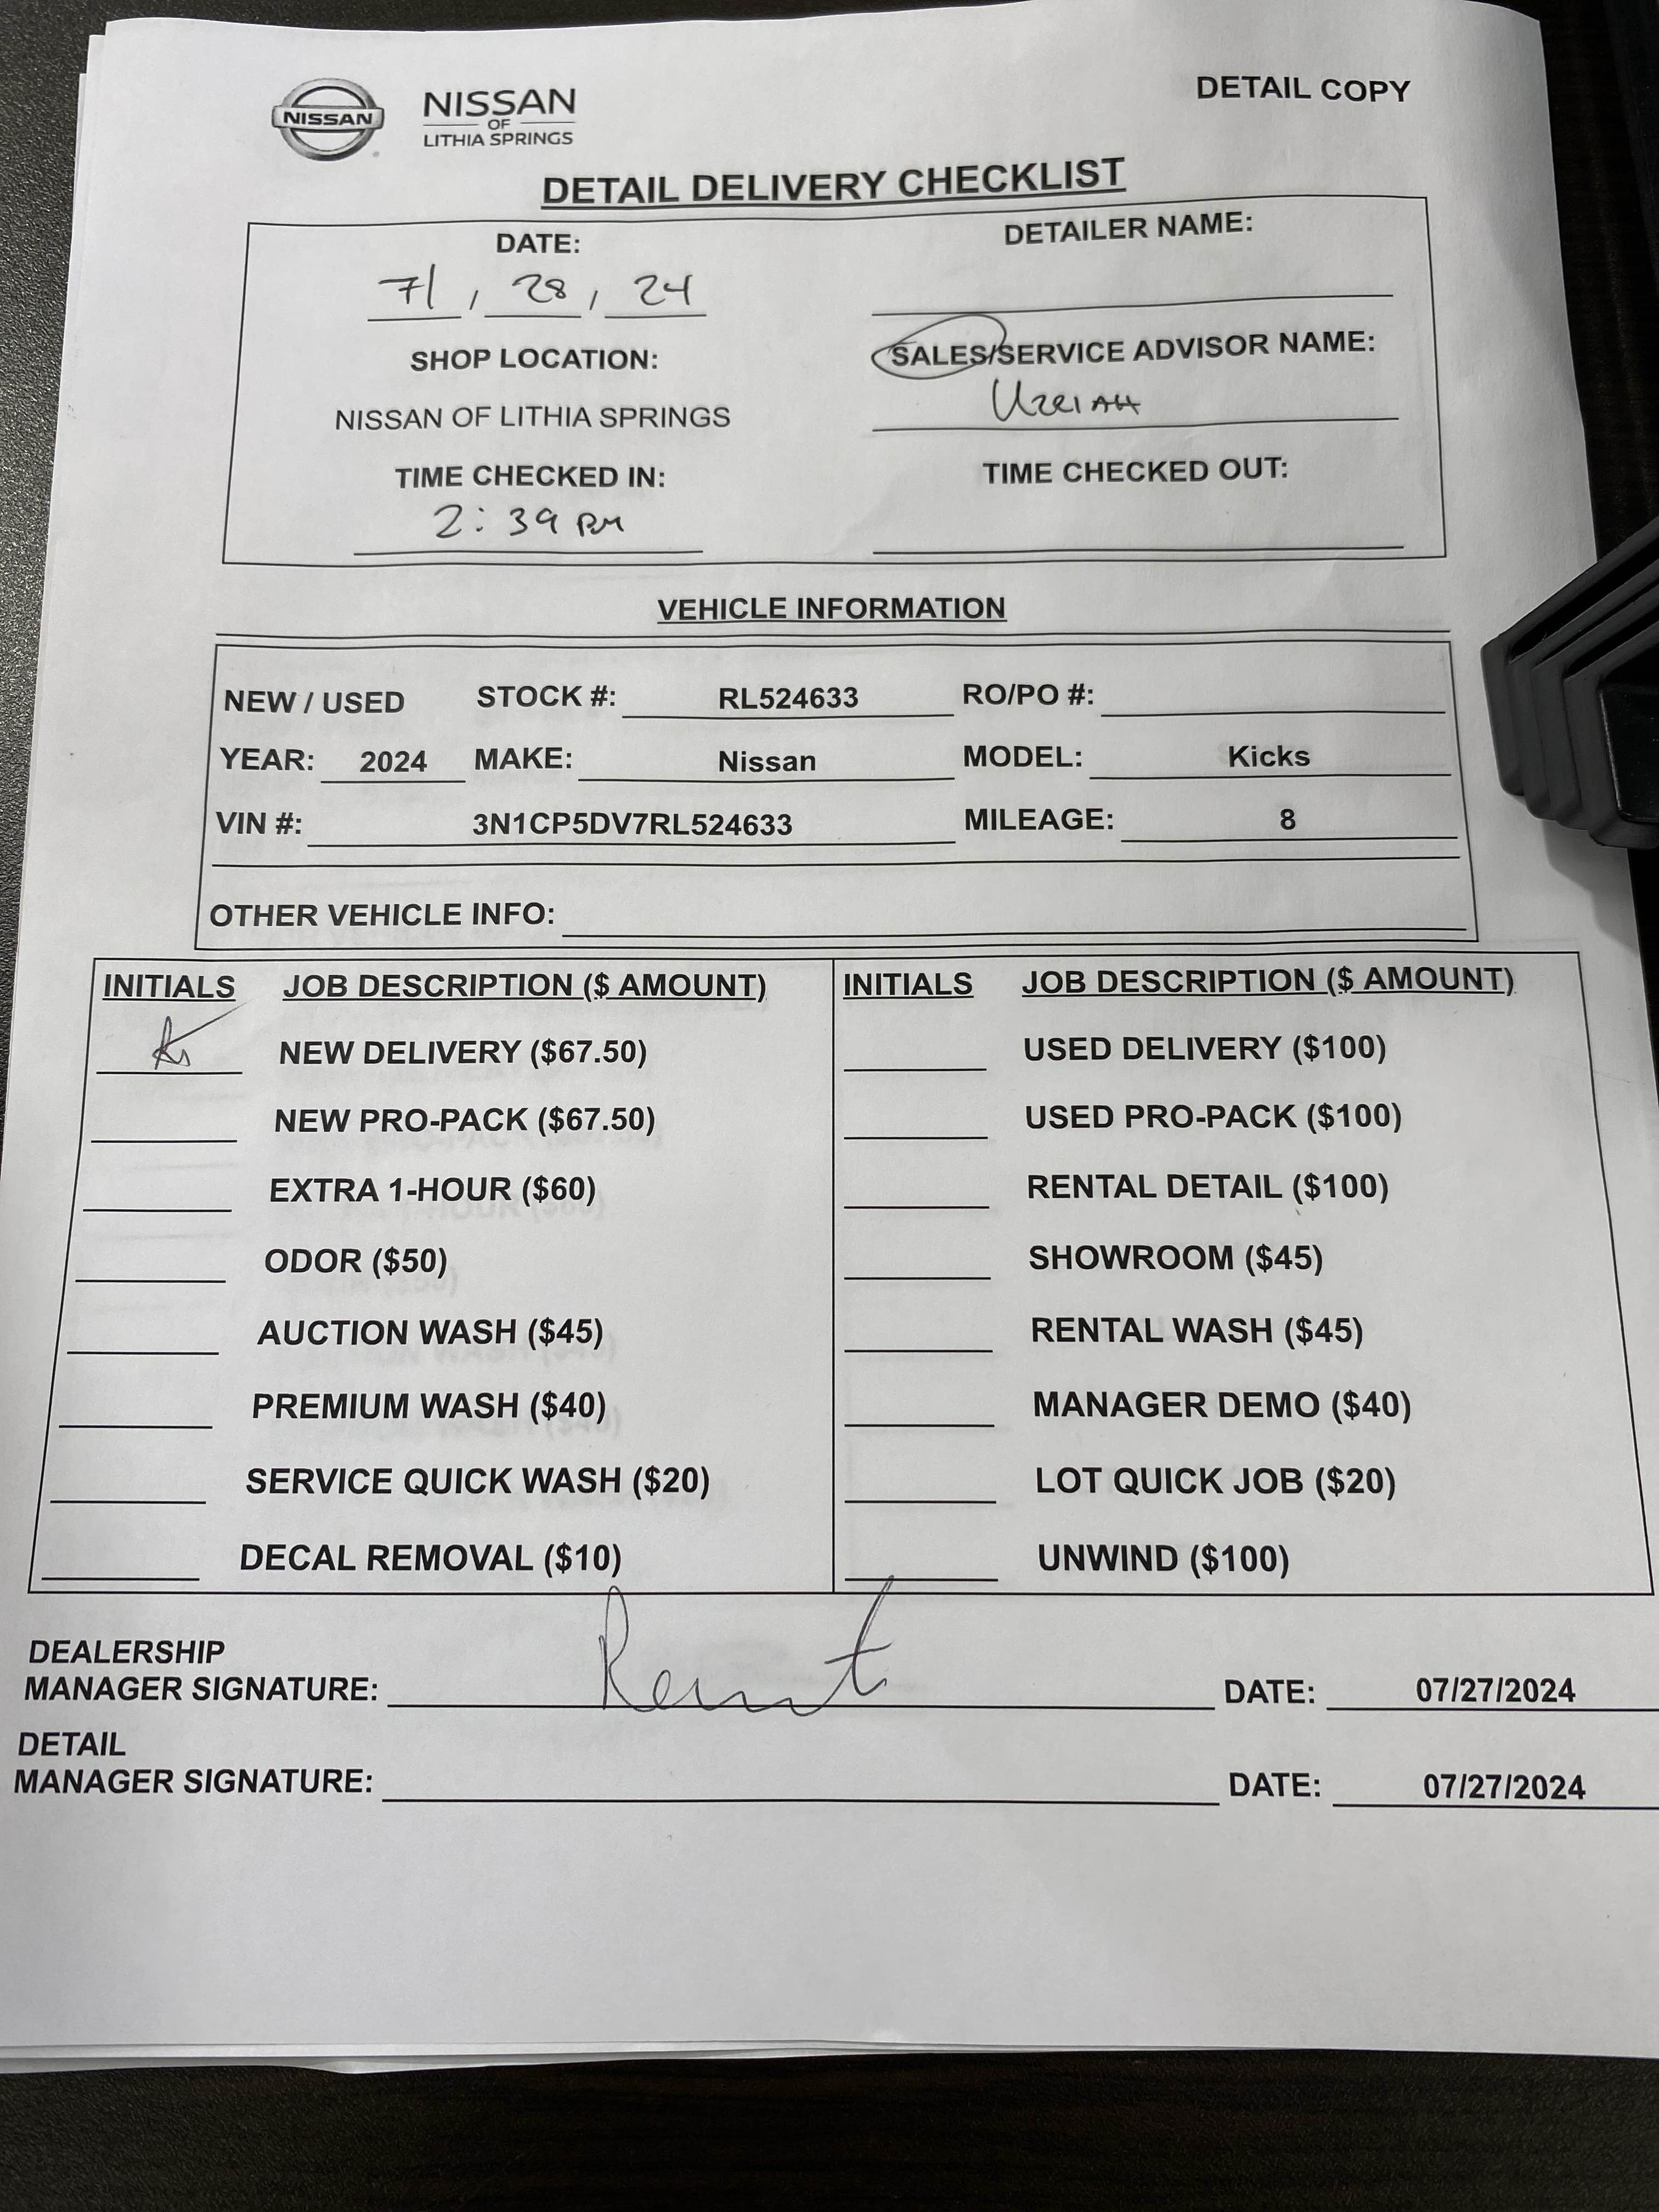 DETAIL COPY
NISSAN
NISSAN
OF
LITHIA SPRINGS
DETAIL DELIVERY CHECKLIST
DATE:
7/ / 28 / 24
DETAILER NAME:
SHOP LOCATION:
NISSAN OF LITHIA SPRINGS
SALES/SERVICE ADVISOR NAME:
UZZIAH
TIME CHECKED IN:
2:39 PM
TIME CHECKED OUT:
VEHICLE INFORMATION
NEW / USED STOCK #: RL524633 RO/PO #:
YEAR: 2024 MAKE: Nissan MODEL: Kicks
VIN #: 3N1CP5DV7RL524633 MILEAGE: 8
OTHER VEHICLE INFO:
INITIALS JOB DESCRIPTION ($ AMOUNT)
NEW DELIVERY ($67.50)
NEW PRO-PACK ($67.50)
EXTRA 1-HOUR ($60)
ODOR ($50)
AUCTION WASH ($45)
PREMIUM WASH ($40)
SERVICE QUICK WASH ($20)
DECAL REMOVAL ($10)
INITIALS JOB DESCRIPTION ($ AMOUNT)
USED DELIVERY ($100)
USED PRO-PACK ($100)
RENTAL DETAIL ($100)
SHOWROOM ($45)
RENTAL WASH ($45)
MANAGER DEMO ($40)
LOT QUICK JOB ($20)
UNWIND ($100)
DEALERSHIP
MANAGER SIGNATURE: DATE: 07/27/2024
DETAIL
MANAGER SIGNATURE: DATE: 07/27/2024